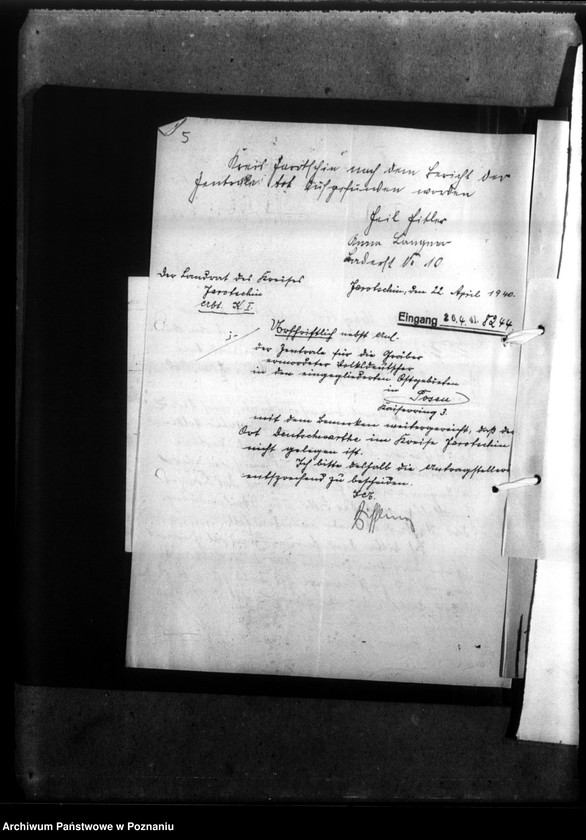 5
Kreis Jarotschin nach dem Bericht der
Zentrale tot aufgefunden worden
Heil Hitler
Anna Langner
Nr 10
Der Landrat des Kreises
Jarotschin
Abt. K I.
Jarotschin, den 22 April 1940.
Eingang 26.4. 8244
Urschriftlich nebst Anl.
der Zentrale für die Gräber
ermordeter Volksdeutscher
in den eingegliederten Ostgebieten
in Posen
Kaiserring 3.
mit dem Bemerken weitergereicht, daß der
Ort Deutschwarthe im Kreise Jarotschin
nicht gelegen ist.
Ich bitte deshalb die Antragsteller
entsprechend zu bescheiden.
Archiwum Państwowe w Poznaniu